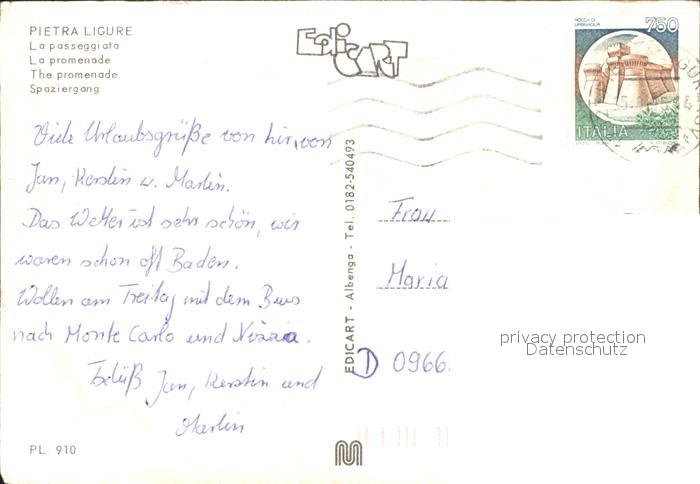 PIETRA LIGURE
La passeggiata
La promenade
The promenade
Spaziergang
EdiCART
ROCCA DI URBISAGLIA
750
ITALIA
Viele Urlaubsgrüße von hier, von
Jan, Kerstin u. Martin.
Das Wetter ist sehr schön, wir
waren schon oft Baden.
Wollen am Freitag mit dem Bus
nach Monte Carlo und Nizza.
Tschüß Jan, Kerstin und
Martin
EDICART - Albenga - Tel. 0182-540493
Frau
Maria
D 0966.
privacy protection
Datenschutz
PL. 910